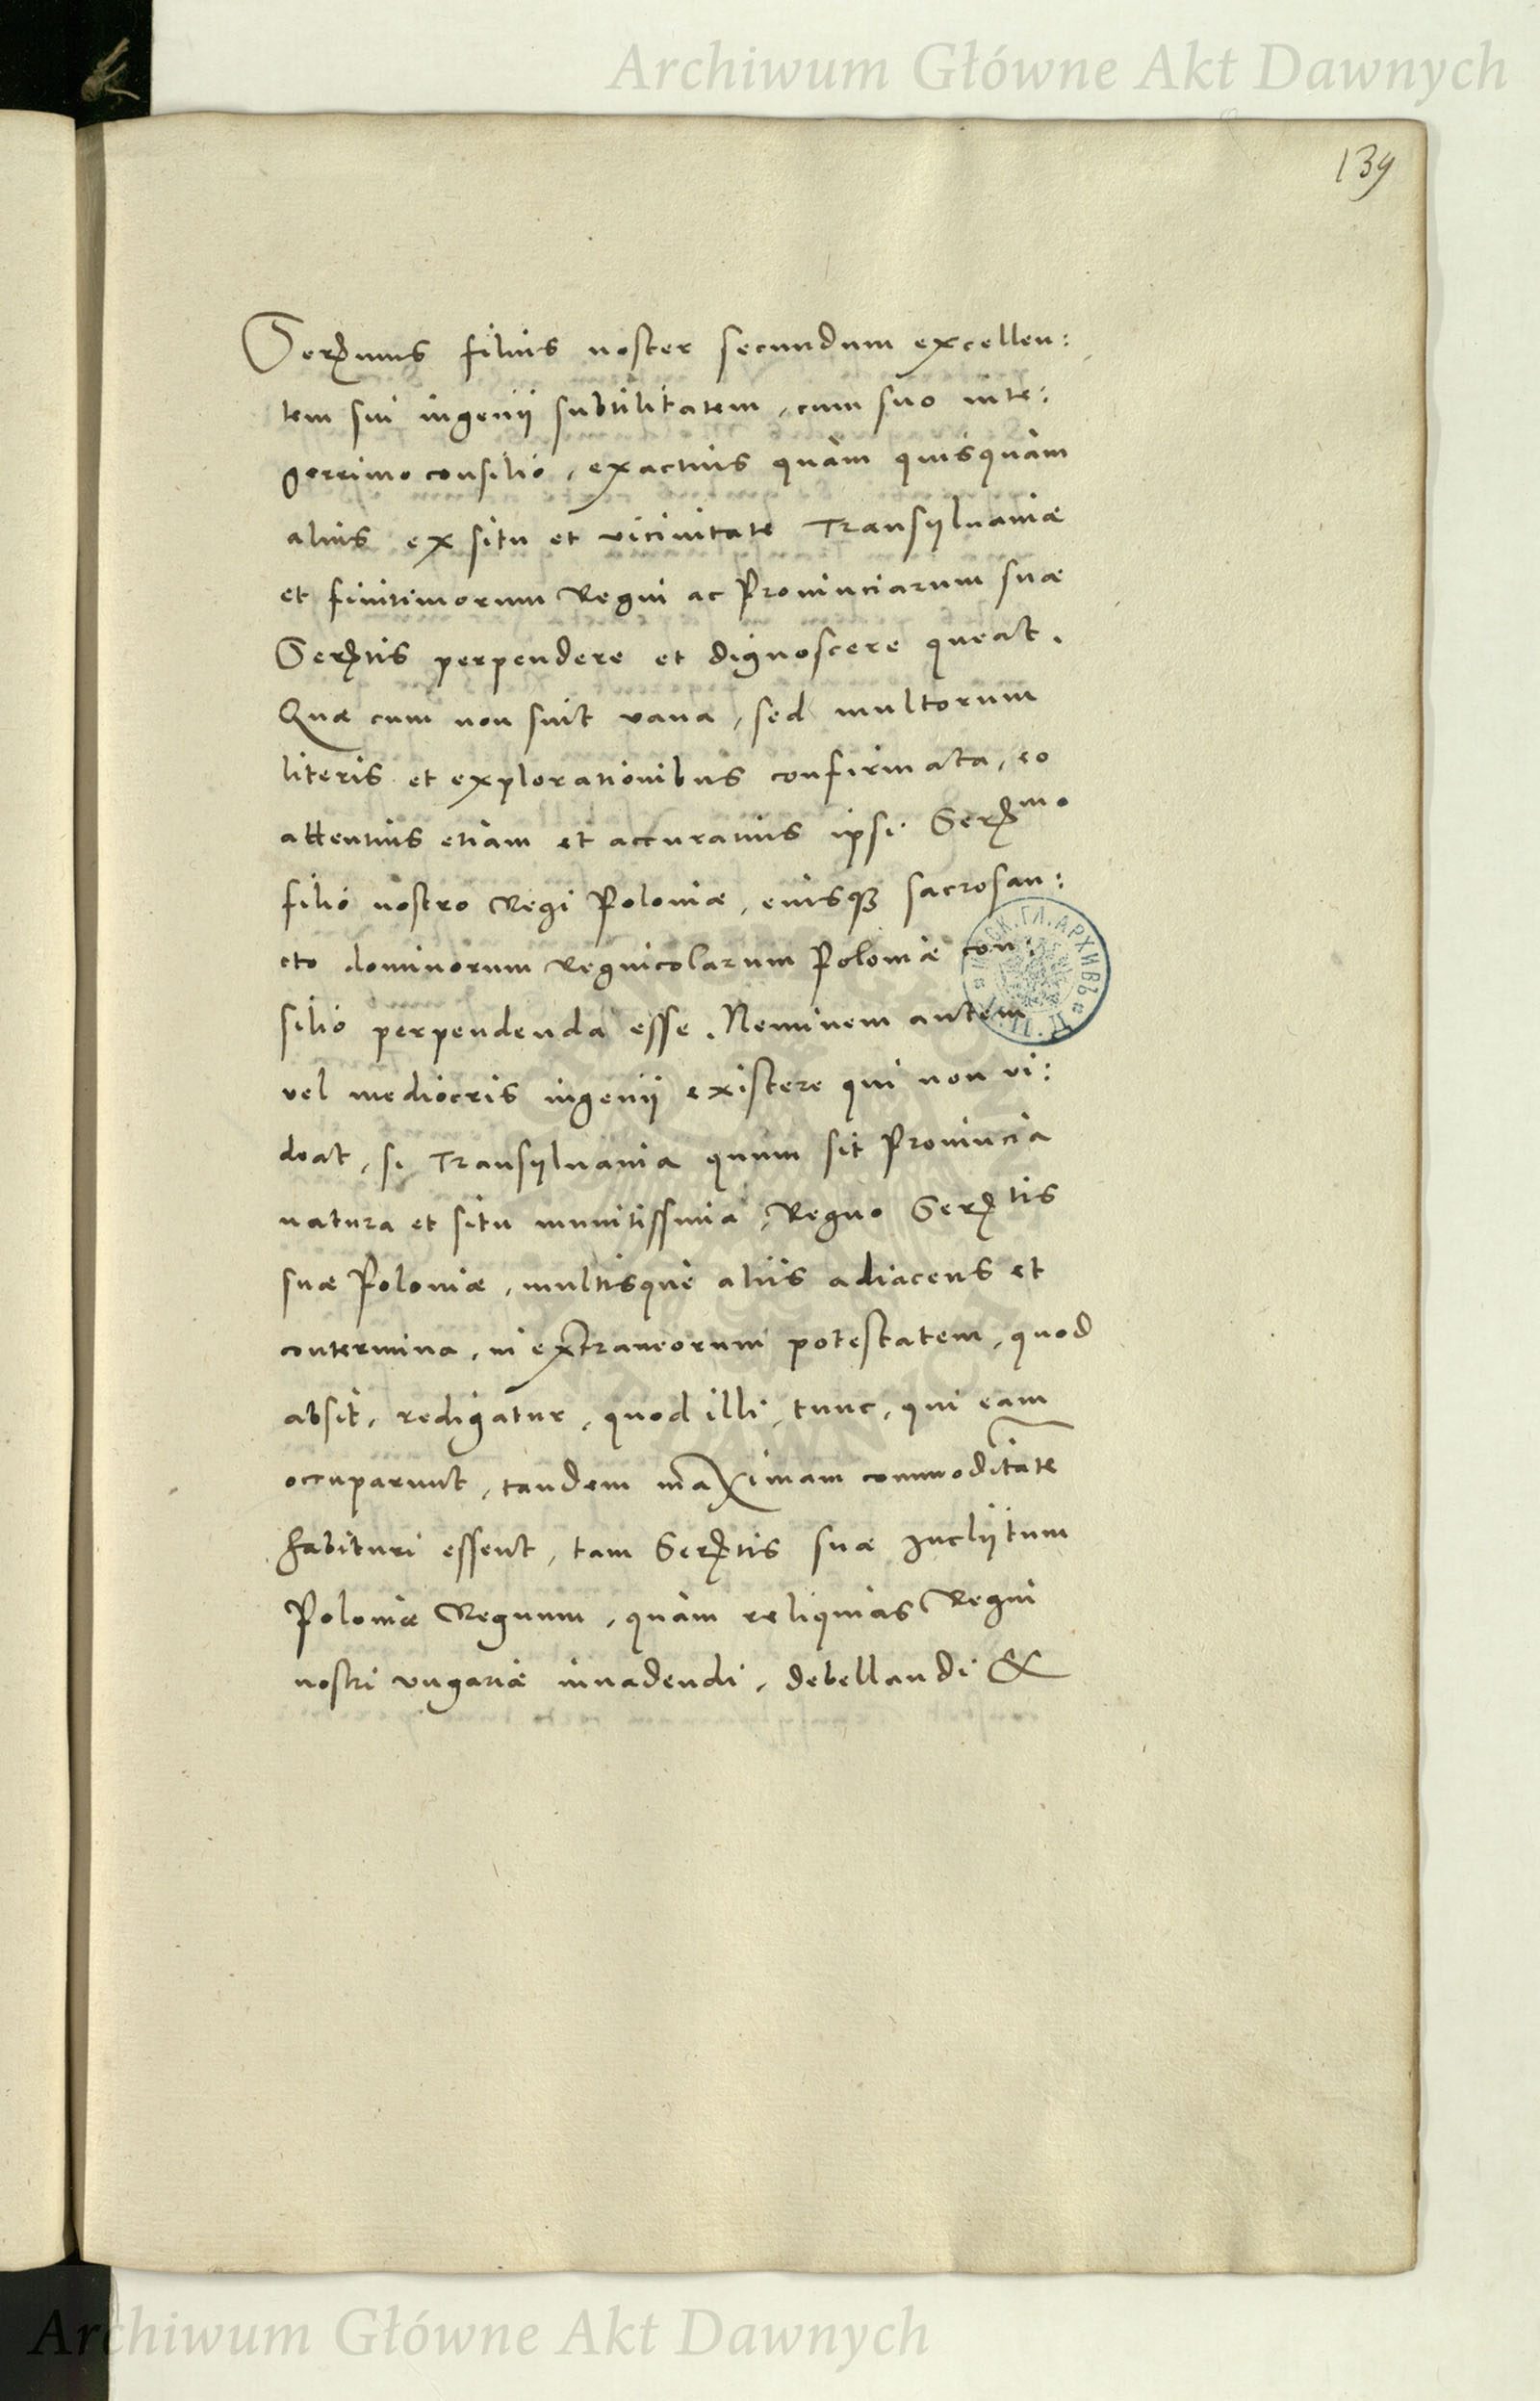 Archiwum Główne Akt Dawnych
139
Serenmus filius noster secundum excellen:
tem sui ingenii subtilitatem, cum suo inte:
gerrimo consilio, exactius quàm quisquàm
alius ex situ et vicinitate Transylvaniæ
et finitimorum Regni ac Provinciarum suæ
Serentis perpendere et dignoscere queat.
Quæ cum non sint vana, sed multorum
literis et explorationibus confirmata, eo
attentius etiam et accuratius ipsi Serenmo
filio nostro Regi Poloniæ, eiusque sacrosan:
cto dominorum Regnicolarum Poloniæ con:
silio perpendenda esse. Neminem autem
vel mediocris ingenii existere qui non vi:
deat, si Transylvania quum sit Provincia
natura et situ munitissima, Regno Serentis
suæ Poloniæ, multisque aliis adiacens et
contermina, in extraneorum potestatem, quod
absit, redigatur, quod illi, tunc, qui eam
occuparunt, tandem maximam commoditatē
habituri essent, tam Serentis suæ Inclijtum
Poloniæ Regnum, quàm reliquias Regni
nostri Vngariæ invadendi, debellandi &
Archiwum Główne Akt Dawnych